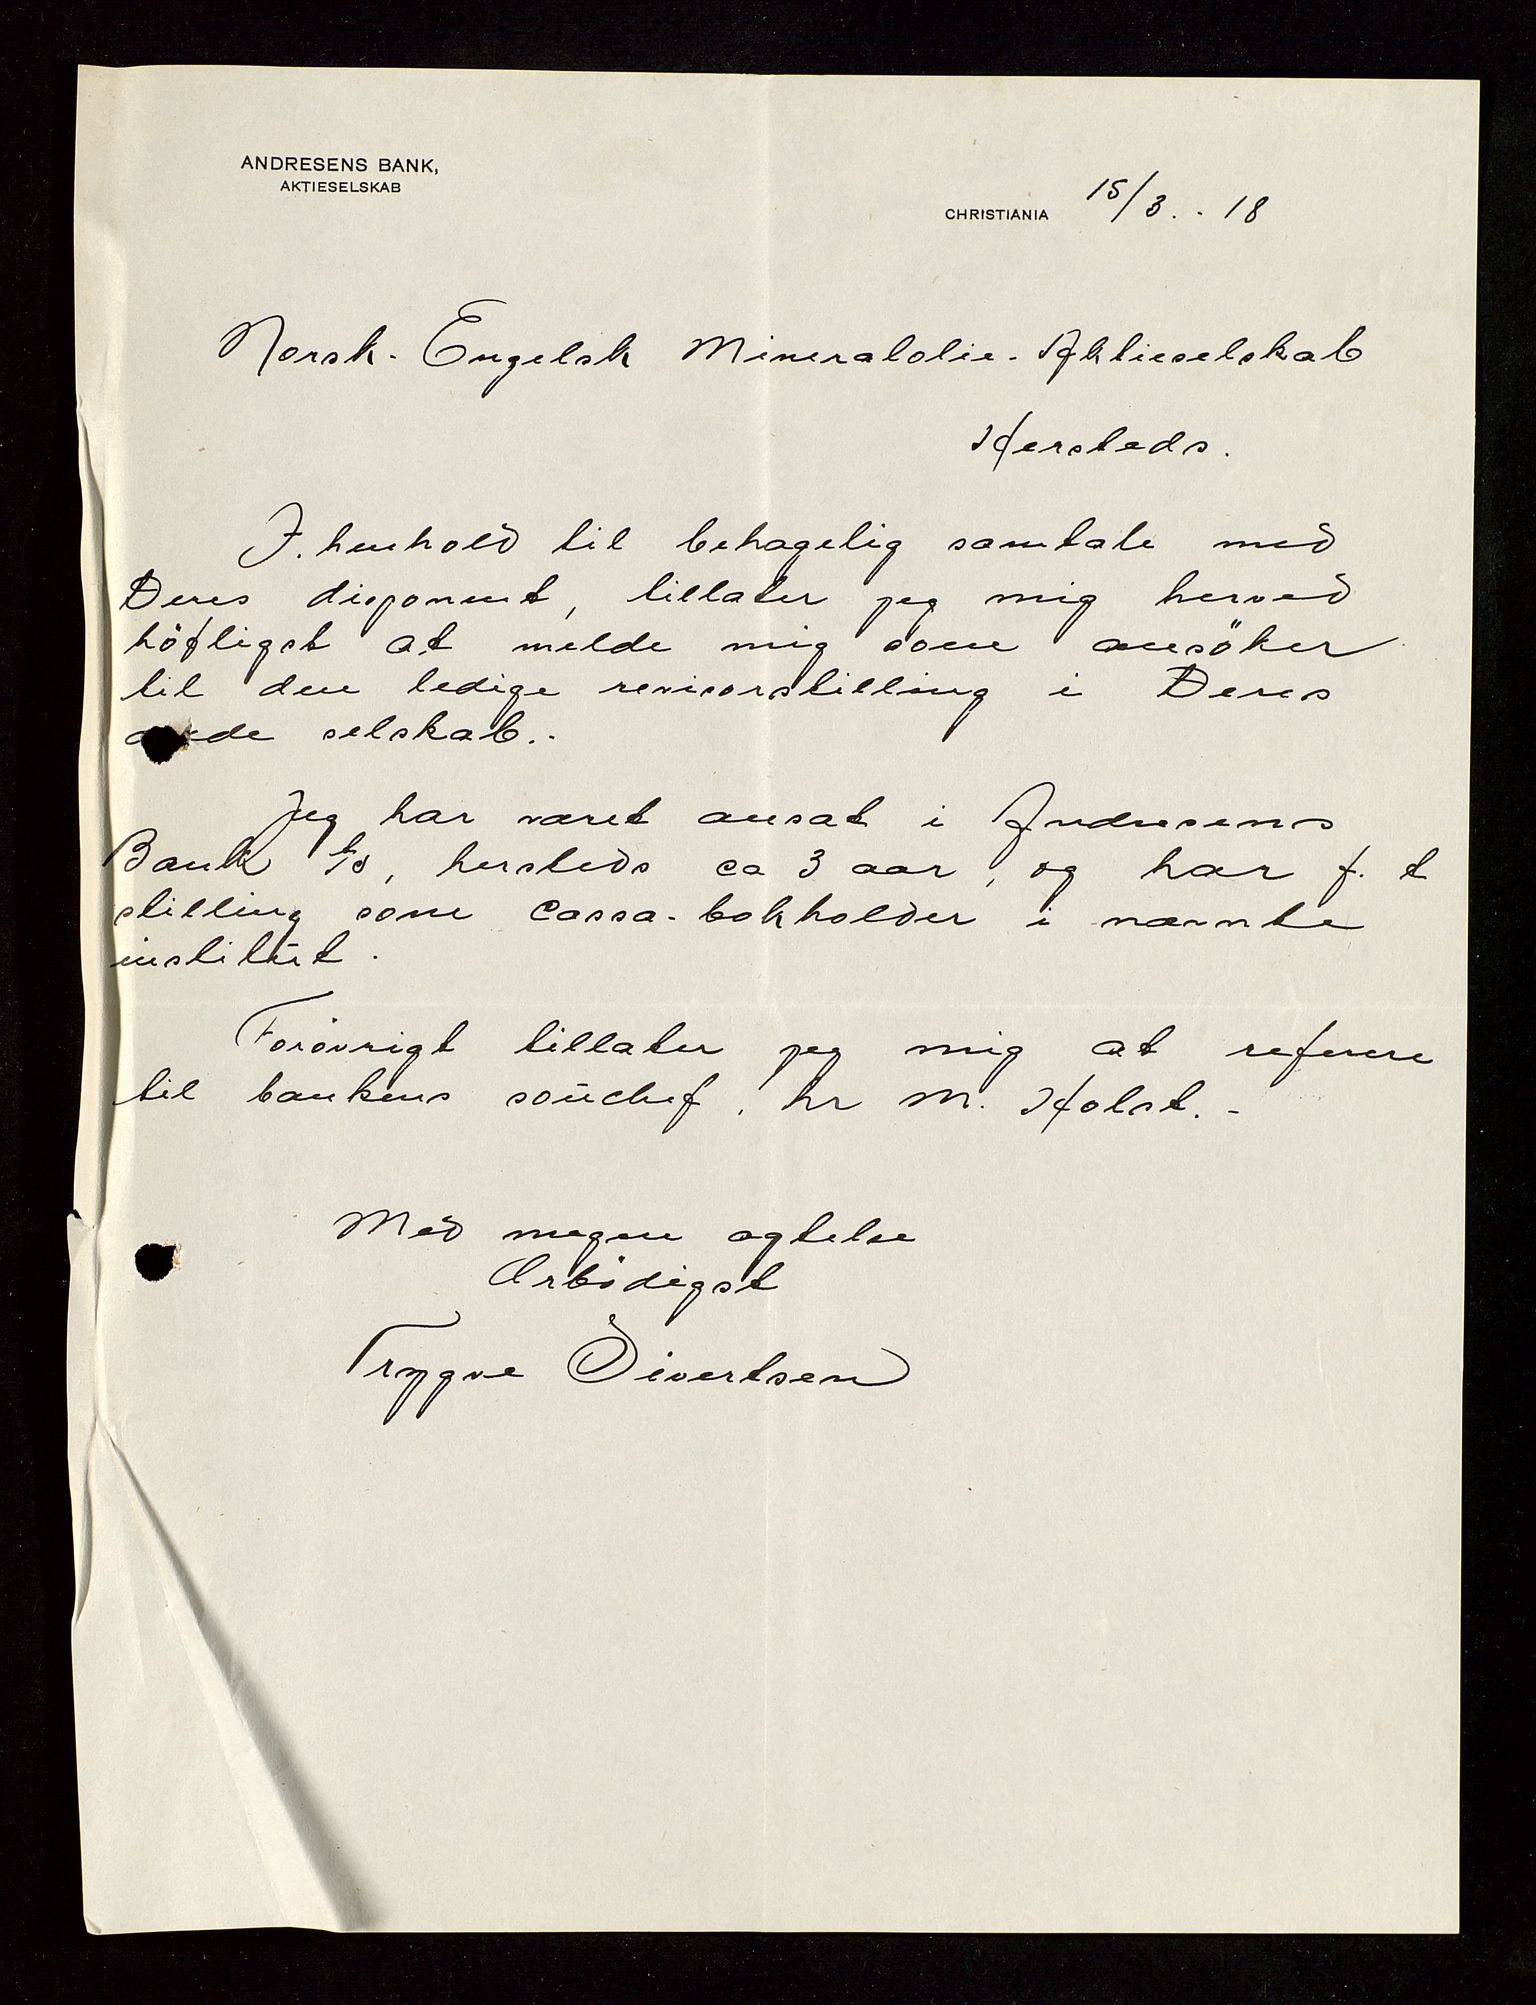 ANDRESENS BANK,
AKTIESELSKAB
CHRISTIANIA 15/3. - 18
Norsk-Engelsk Mineralolie-Aktieselskab
Hersteds.
I henhold til behagelig samtale med
Deres disponent, tillater jeg mig herved
höfligst at melde mig som ansöker
til den ledige revisorstilling i Deres
ærede selskab.-
Jeg har været ansat i Andresens
Bank A/S, hersteds ca 3 aar, og har f. t
stilling som Cassa-bokholder i nævnte
institut.
Forövrigt tillater jeg mig at referere
til bankens souchef, hr M. Holst.-
Med megen agtelse
Ærbödigst
Trygve Sivertsen